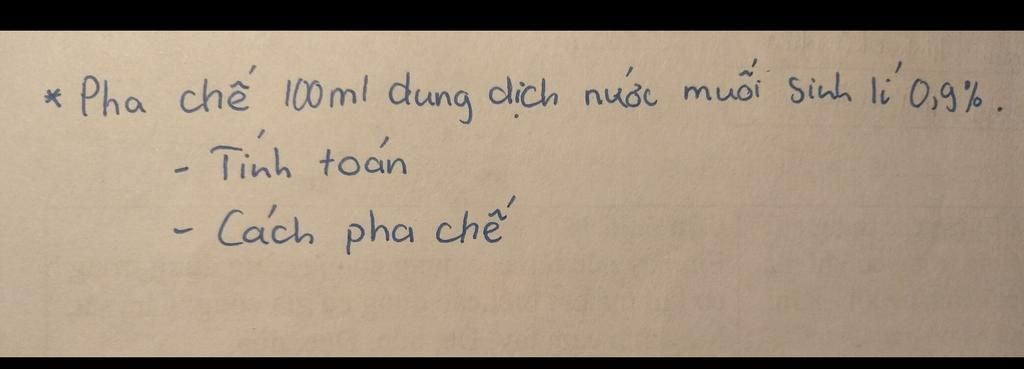 * Pha chế 100ml dung dịch nước muối sinh lí 0,9%.
- Tính toán
- Cách pha chế